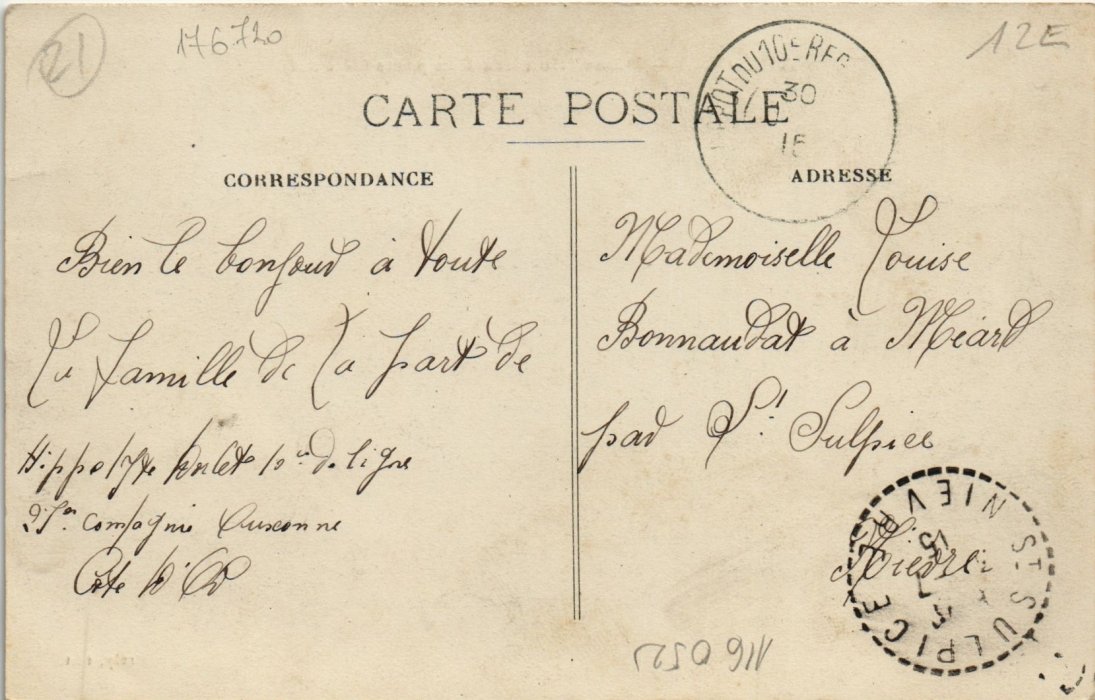 21
176720
12E
DÉPOT DU 10E REG
30
15
CARTE POSTALE
CORRESPONDANCE
ADRESSE
Bien le bonjour à toute
la famille de la part de
Hippolyte 10e de ligne
27e Compagnie Auxonne
Côte d'Or
Mademoiselle Louise
Bonnaudat à Méard
par St Sulpice
Nièvre
ST SULPICE NIEVRE
116 052